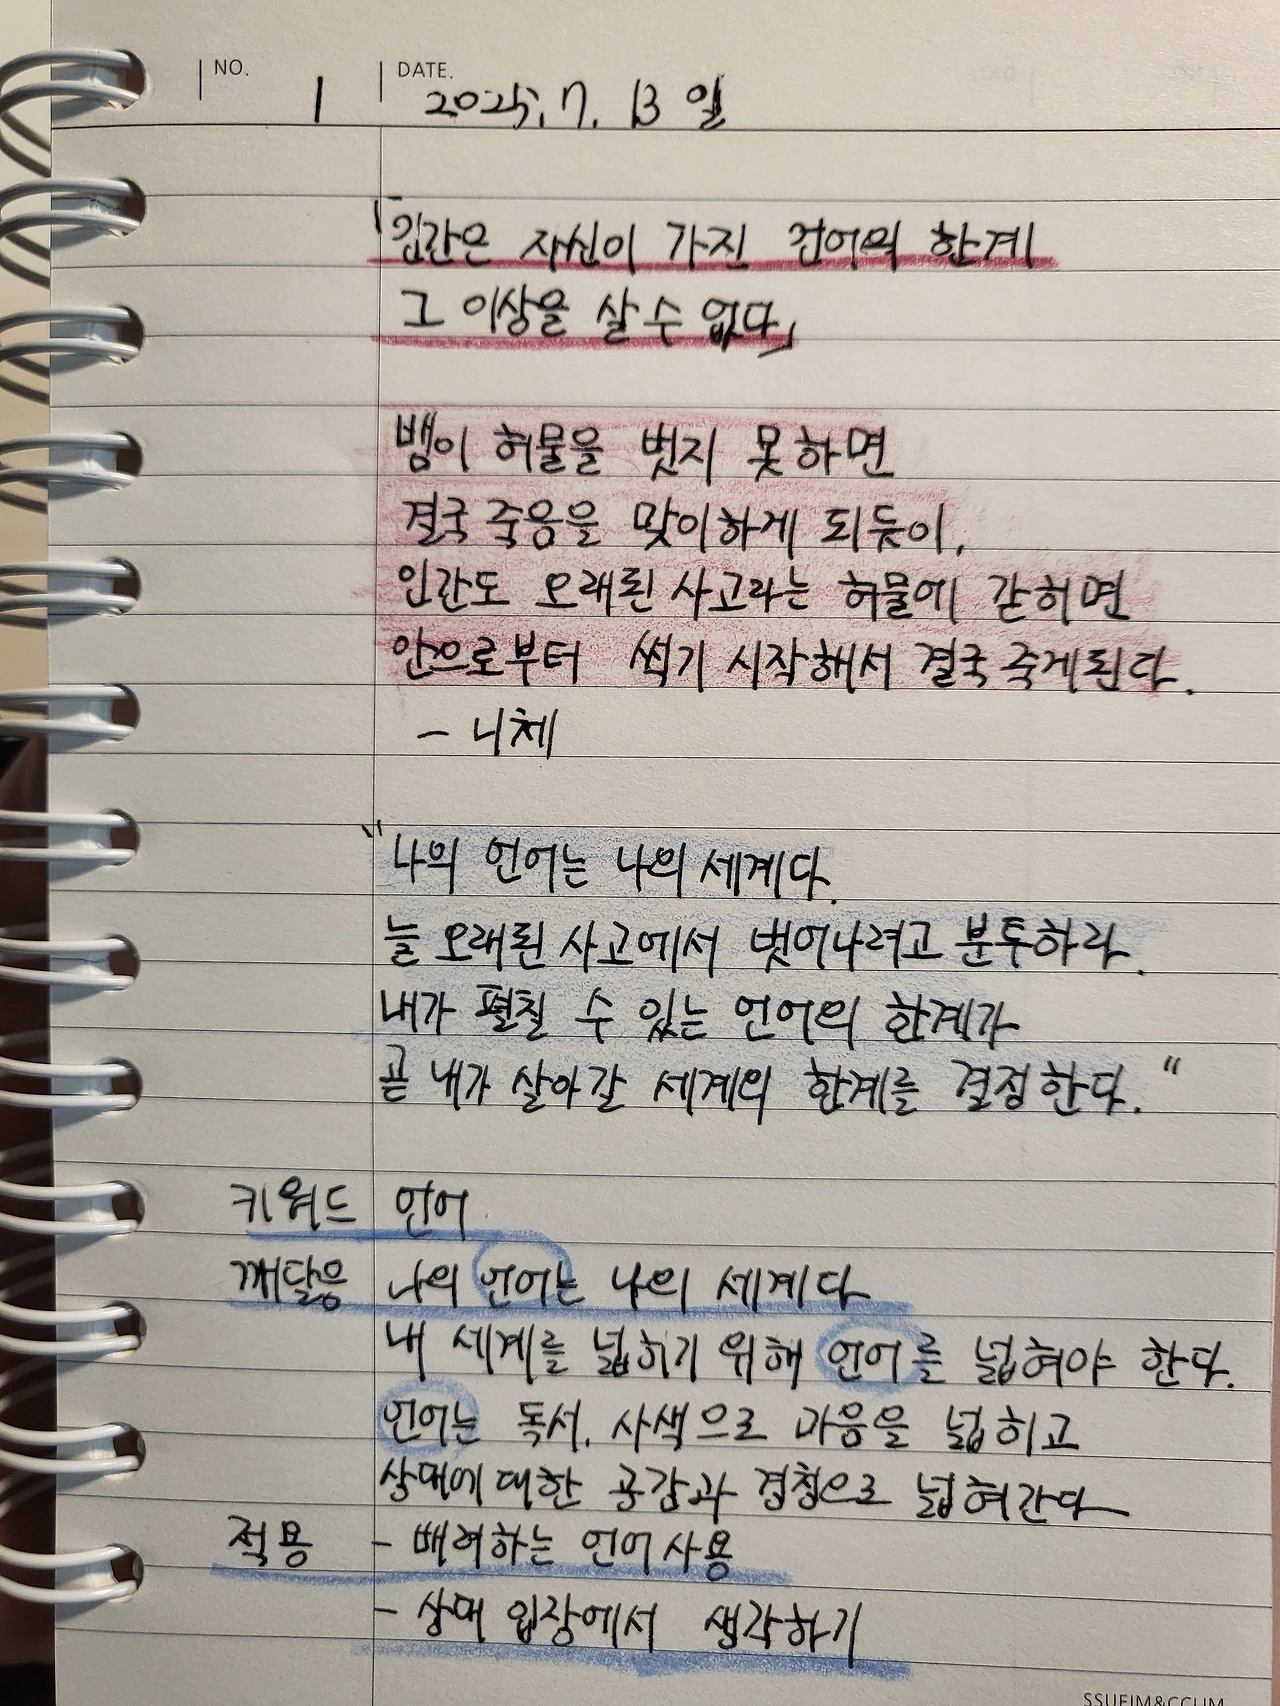 NO. 1 DATE. 2025. 7. 13 일
「인간은 자신이 가진 언어의 한계
그 이상을 살 수 없다」
뱀이 허물을 벗지 못하면
결국 죽음을 맞이하게 되듯이,
인간도 오래된 사고라는 허물에 갇히면
안으로부터 썩기 시작해서 결국 죽게된다.
- 니체
"나의 언어는 나의 세계다.
늘 오래된 사고에서 벗어나려고 분투하라.
내가 펼칠 수 있는 언어의 한계가
곧 내가 살아갈 세계의 한계를 결정한다."
키워드 언어
깨달음 나의 언어는 나의 세계다
내 세계를 넓히기 위해 언어를 넓혀야 한다.
언어는 독서, 사색으로 마음을 넓히고
상대에 대한 공감과 경청으로 넓혀간다
적용 - 배려하는 언어 사용
- 상대 입장에서 생각하기